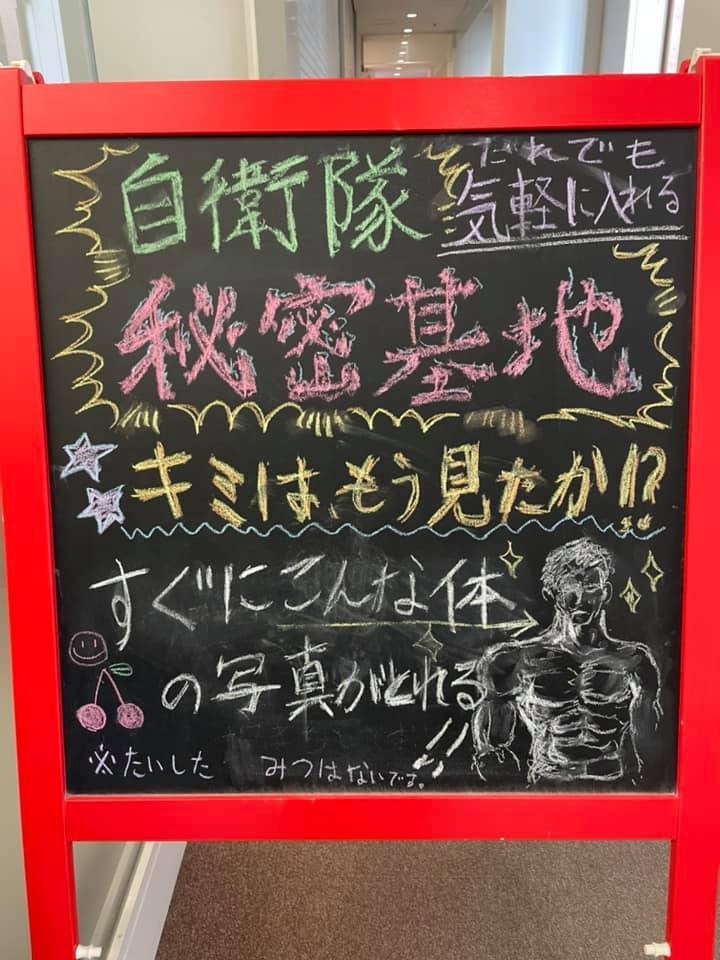 自衛隊
だれでも
気軽に入れる
秘密基地
キミは、もう見たか!?
すぐにこんな体
の写真がとれる!!
※たいした みつはないです。